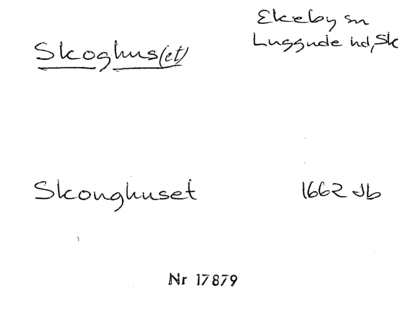 Skoghus(et)
Ekeby sn
Luggude hd, Sk
Skonghuset 1662 Jb
Nr 17879